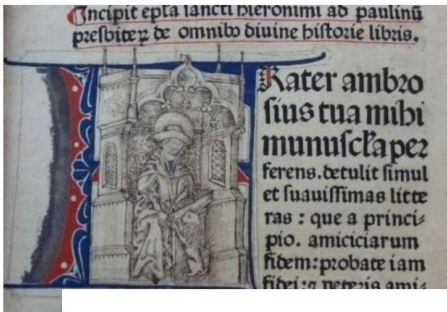 Incipit ep̄la sancti hieronimi ad paulinū
presbiteꝝ de omnibꝰ diuine historie libris.
Frater ambro
sius tua mihi
munuscl̄a per
ferens. detulit simul
et suauissimas litte
ras : que a princi-
pio. amiciciarum
fidem: probate iam
fidei: ⁊ veteris ami-